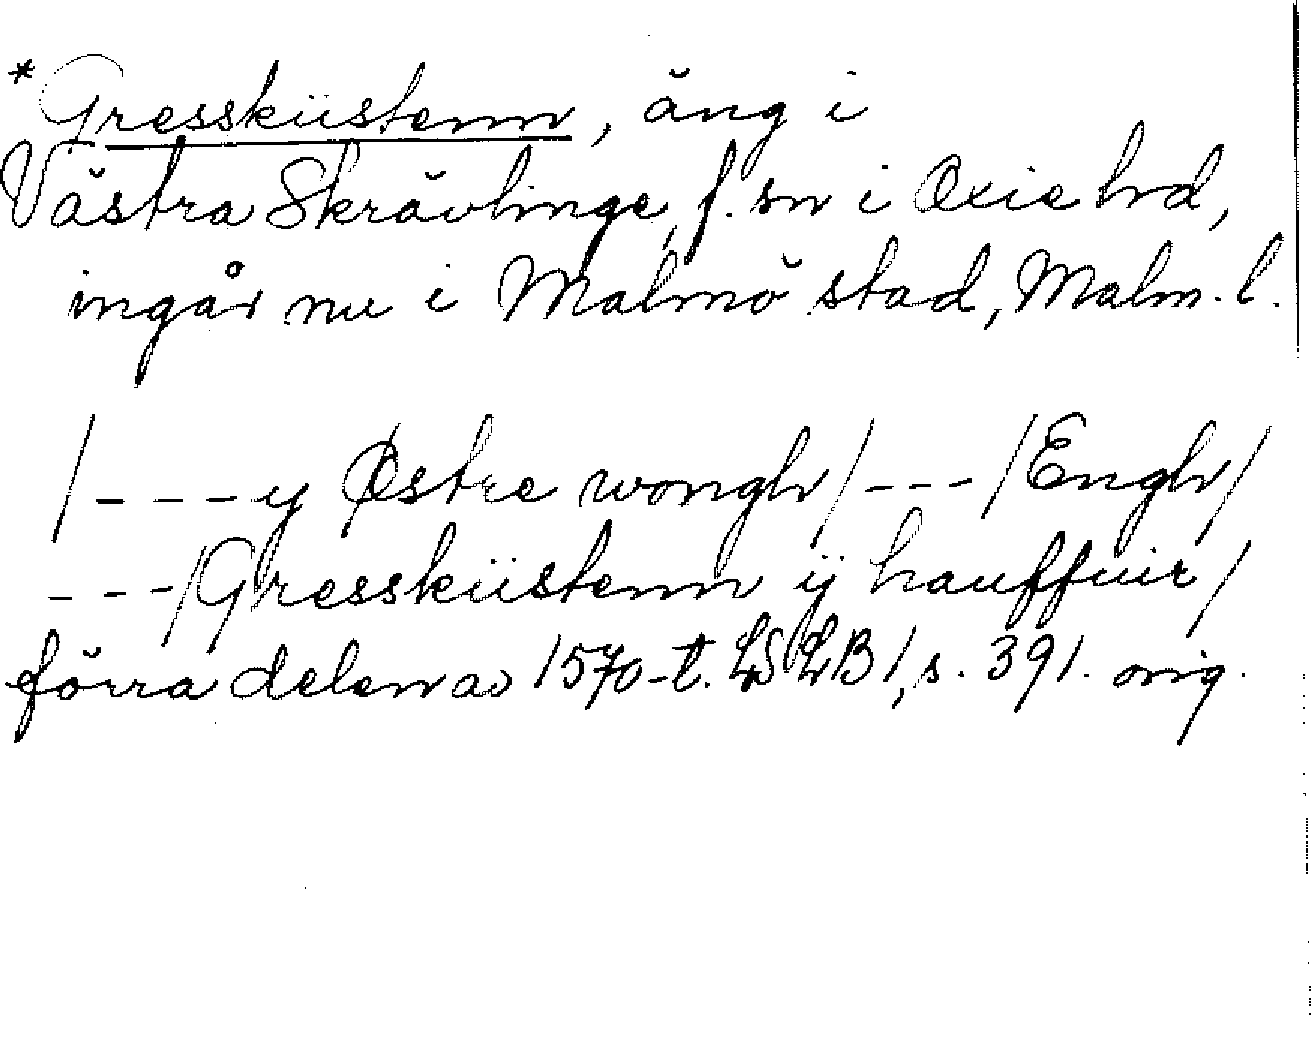 *Gressküstenn, äng i
Västra Skrävlinge, f. sn i Oxie hd,
ingår nu i Malmö stad, Malm. l.
/ - - - y Østre wongh / - - - / Engh /
- - - / Gressküstenn ÿ hauffuir /
förra delen av 1570-t. LSLB 1, s. 391. orig.